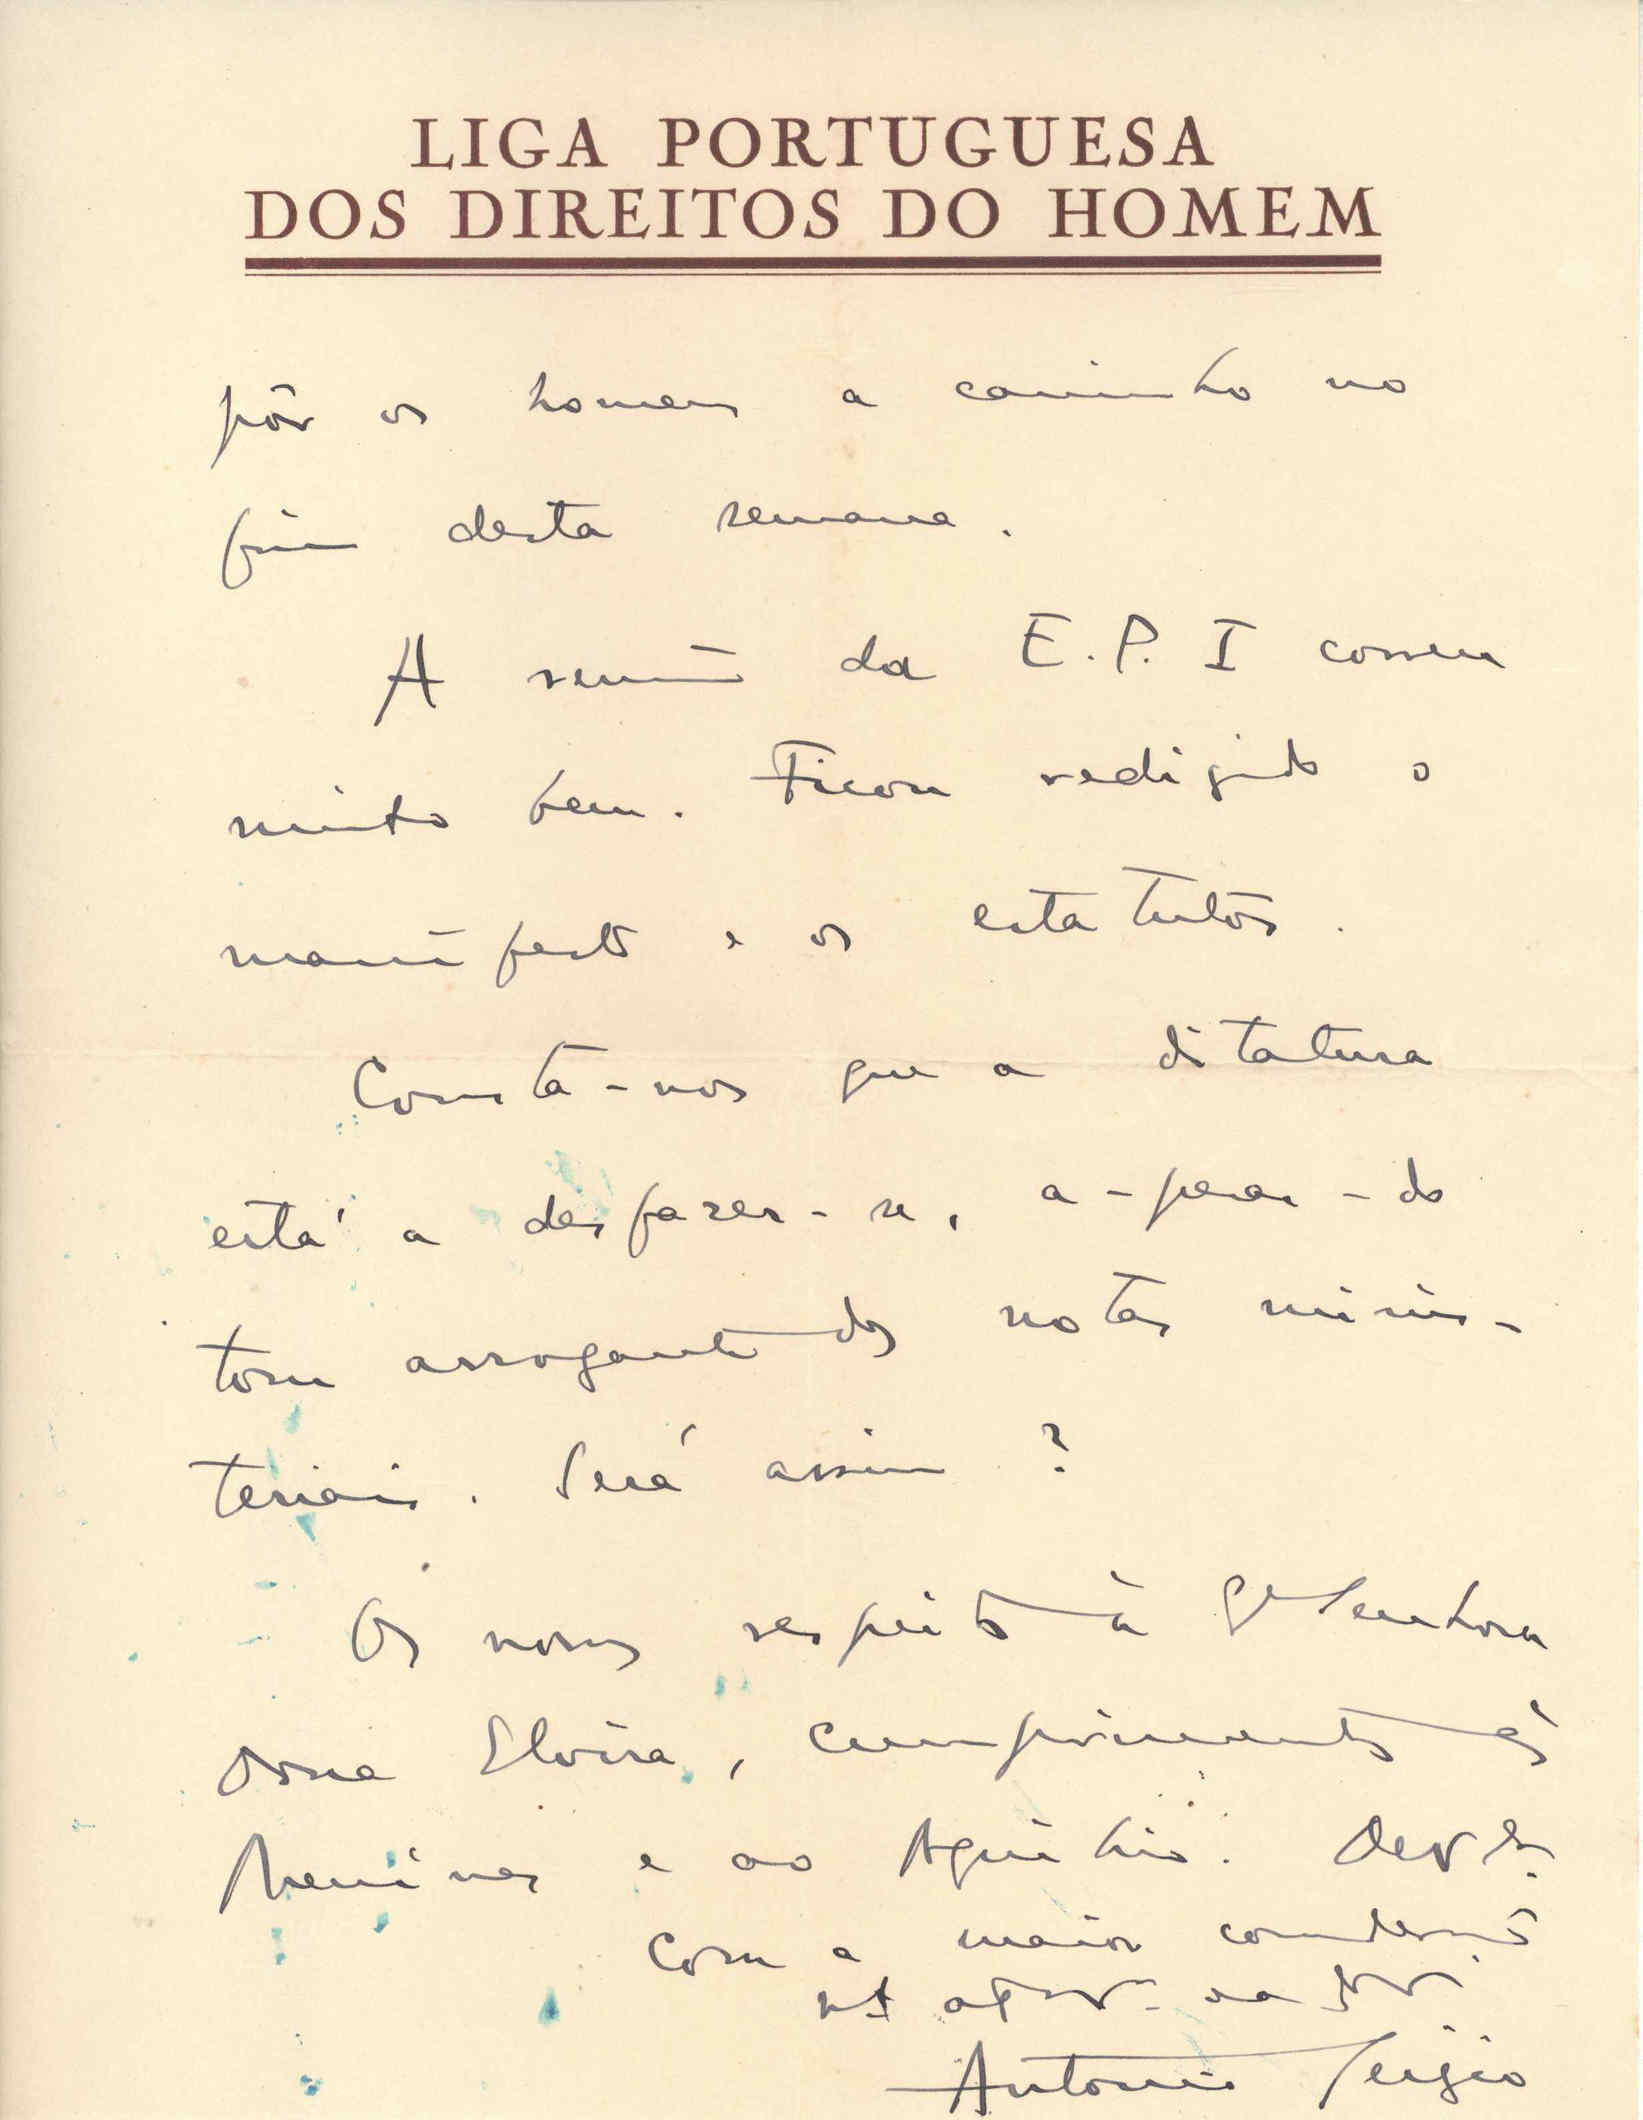 LIGA PORTUGUESA
DOS DIREITOS DO HOMEM
pôr os homens a caminho no
fim desta semana.
A reunião da E.P.I correu
muito bem. Ficou redigido o
manifesto e os estatutos.
Consta-nos que a ditatura
está a desfazer-se, a-pesar-do
tom arrogante das notas minis-
teriais. Será assim?
Os nossos respeitos à Senhora
Dona Elvira, cumprimentos às
Meninas e ao Agostinho.
Com a maior consideração
Antonio Sergio